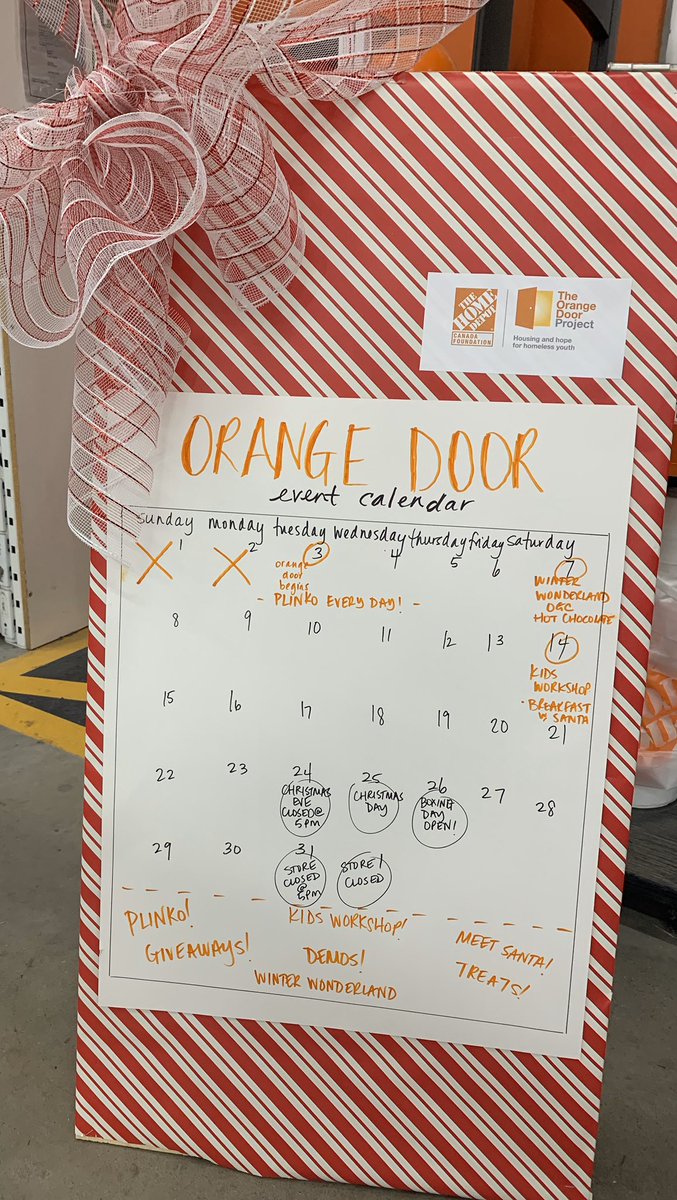 THE
HOME
DEPOT
CANADA
FOUNDATION
The
Orange
Door
Project
Housing and hope
for homeless youth
ORANGE DOOR
event calendar
sunday monday tuesday wednesday thursday friday saturday
1 2 3 4 5 6 7
orange
door
begins
- PLINKO EVERY DAY! -
WINTER
WONDERLAND
HOT CHOCOLATE
8 9 10 11 12 13 14
KIDS
WORKSHOP
BREAKFAST
SANTA
15 16 17 18 19 20 21
22 23 24 25 26 27 28
CHRISTMAS
EVE
CLOSED@
5PM
CHRISTMAS
DAY
BOXING
DAY
OPEN!
29 30 31 1
STORE
CLOSED
@
5PM
STORE
CLOSED
PLINKO!
GIVEAWAYS!
KIDS WORKSHOP!
DEMOS!
WINTER WONDERLAND
MEET SANTA!
TREATS!